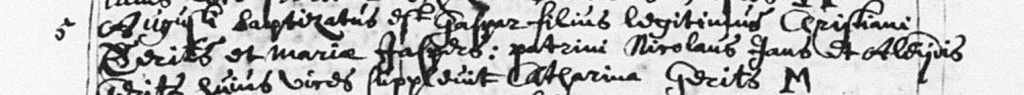 5 Augusti baptizatus est Gaspar filius legitimus Christiani
Gerits et Mariæ Jaspers: patrini Nicolaus Jans et Aleijdis
Gerits huius vices supplevit Catharina Gerits M